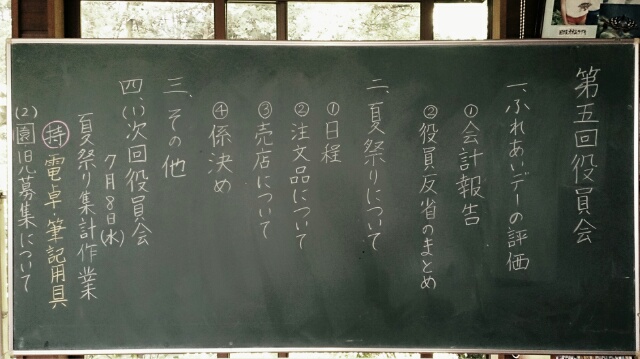 第五回役員会
一、ふれあいデーの評価
①会計報告
②役員反省のまとめ
二、夏祭りについて
①日程
②注文品について
③売店について
④係決め
三、その他
四、(1)次回役員会
7月8日(水)
夏祭り集計作業
持 電卓・筆記用具
(2)園児募集について